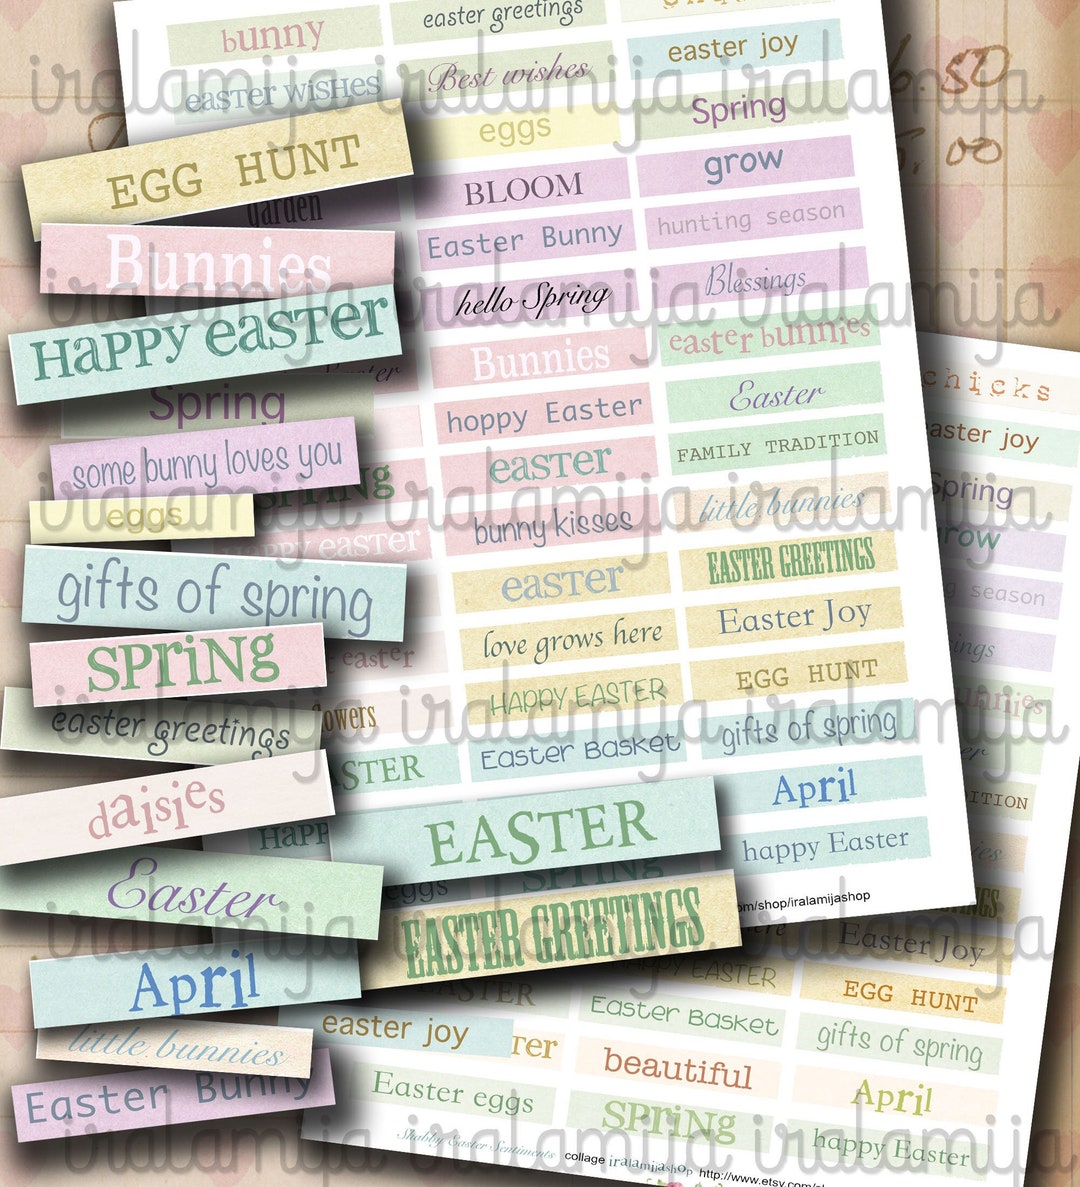 bunny
easter greetings
easter wishes
Best wishes
easter joy
eggs
Spring
50
00
EGG HUNT
garden
BLOOM
grow
Bunnies
Easter Bunny
hunting season
Happy easter
hello Spring
Blessings
Spring
Bunnies
easter bunnies
some bunny loves you
hoppy Easter
Easter
SPRiNG
easter
FAMILY TRADITION
eggs
Happy easter
bunny kisses
little bunnies
gifts of spring
easter
EASTER GREETINGS
SPRiNG
easter
love grows here
Easter Joy
easter greetings
flowers
HAPPY EASTER
EGG HUNT
daisies
EASTER
Easter Basket
gifts of spring
Happy
EASTER
April
Easter
eggs
SPRiNG
happy Easter
EASTER GREETINGS
com/shop/iralamijashop
April
little bunnies
Easter Bunny
chicks
easter joy
Spring
grow
season
Easter Joy
EASTER
EGG HUNT
easter joy
Easter Basket
gifts of spring
beautiful
April
Easter eggs
SPRiNG
happy Easter
Shabby Easter Sentiments
collage iralamijashop http://www.etsy.com/s
iralamija iralamija iralamija